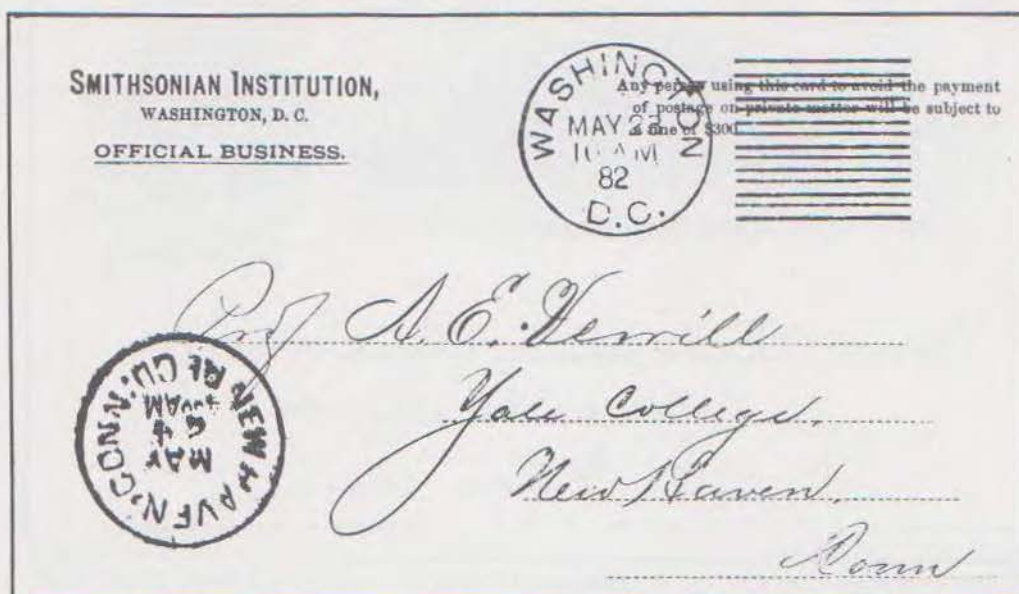 SMITHSONIAN INSTITUTION,
WASHINGTON, D. C.
OFFICIAL BUSINESS.
WASHINGTON
MAY 23
10 AM
82
D.C.
Any person using this card to avoid the payment
of postage on private matter will be subject to
a fine of $300.
Prof A. E. Verrill
Yale College,
New Haven,
Conn
NEW HAVEN, CONN.
REC'D.
MAY
24
AM